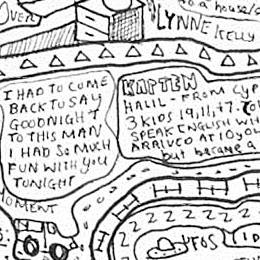 OVER
to a house/
LYNNE KELLY
I HAD TO COME
BACK TO SAY
GOODNIGHT
TO THIS MAN
I HAD SO MUCH
FUN WITH YOU
TONIGHT
KAPTEN
HALIL - FROM CYP
3 KIDS 19, 11, + 7.
SPEAK ENGLISH WH
ARRIVED AT 10 YO
but became a
MOMENT
ZZZZZZZZ
UFOS